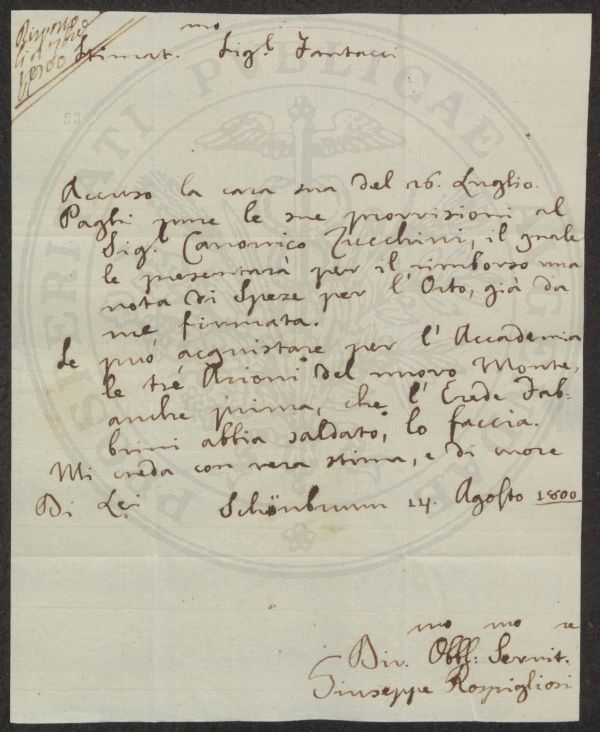 Risposto
li 2 7bre
1800
Stimat.mo Sigr. Fantacci
Accuso la cara sua del 26. Luglio.
Paghi pure le sue provvisioni al
Sigr. Canonico Zucchini, il quale
le presentarà per il rimborso una
nota di Spese per l'Orto, già da
me firmata.
Se può acquistare per l'Accademia
le tré Azioni del nuovo Monte,
anche prima, che l'Erede Fab-
brini abbia saldato, lo faccia.
Mi creda con vera stima, e di cuore
Di Lei Schönbrunn 14. Agosto 1800
Div.mo Obbl:mo Servit.re
Giuseppe Rospigliosi
PROSPERITATI PUBLICAE AUGENDAE